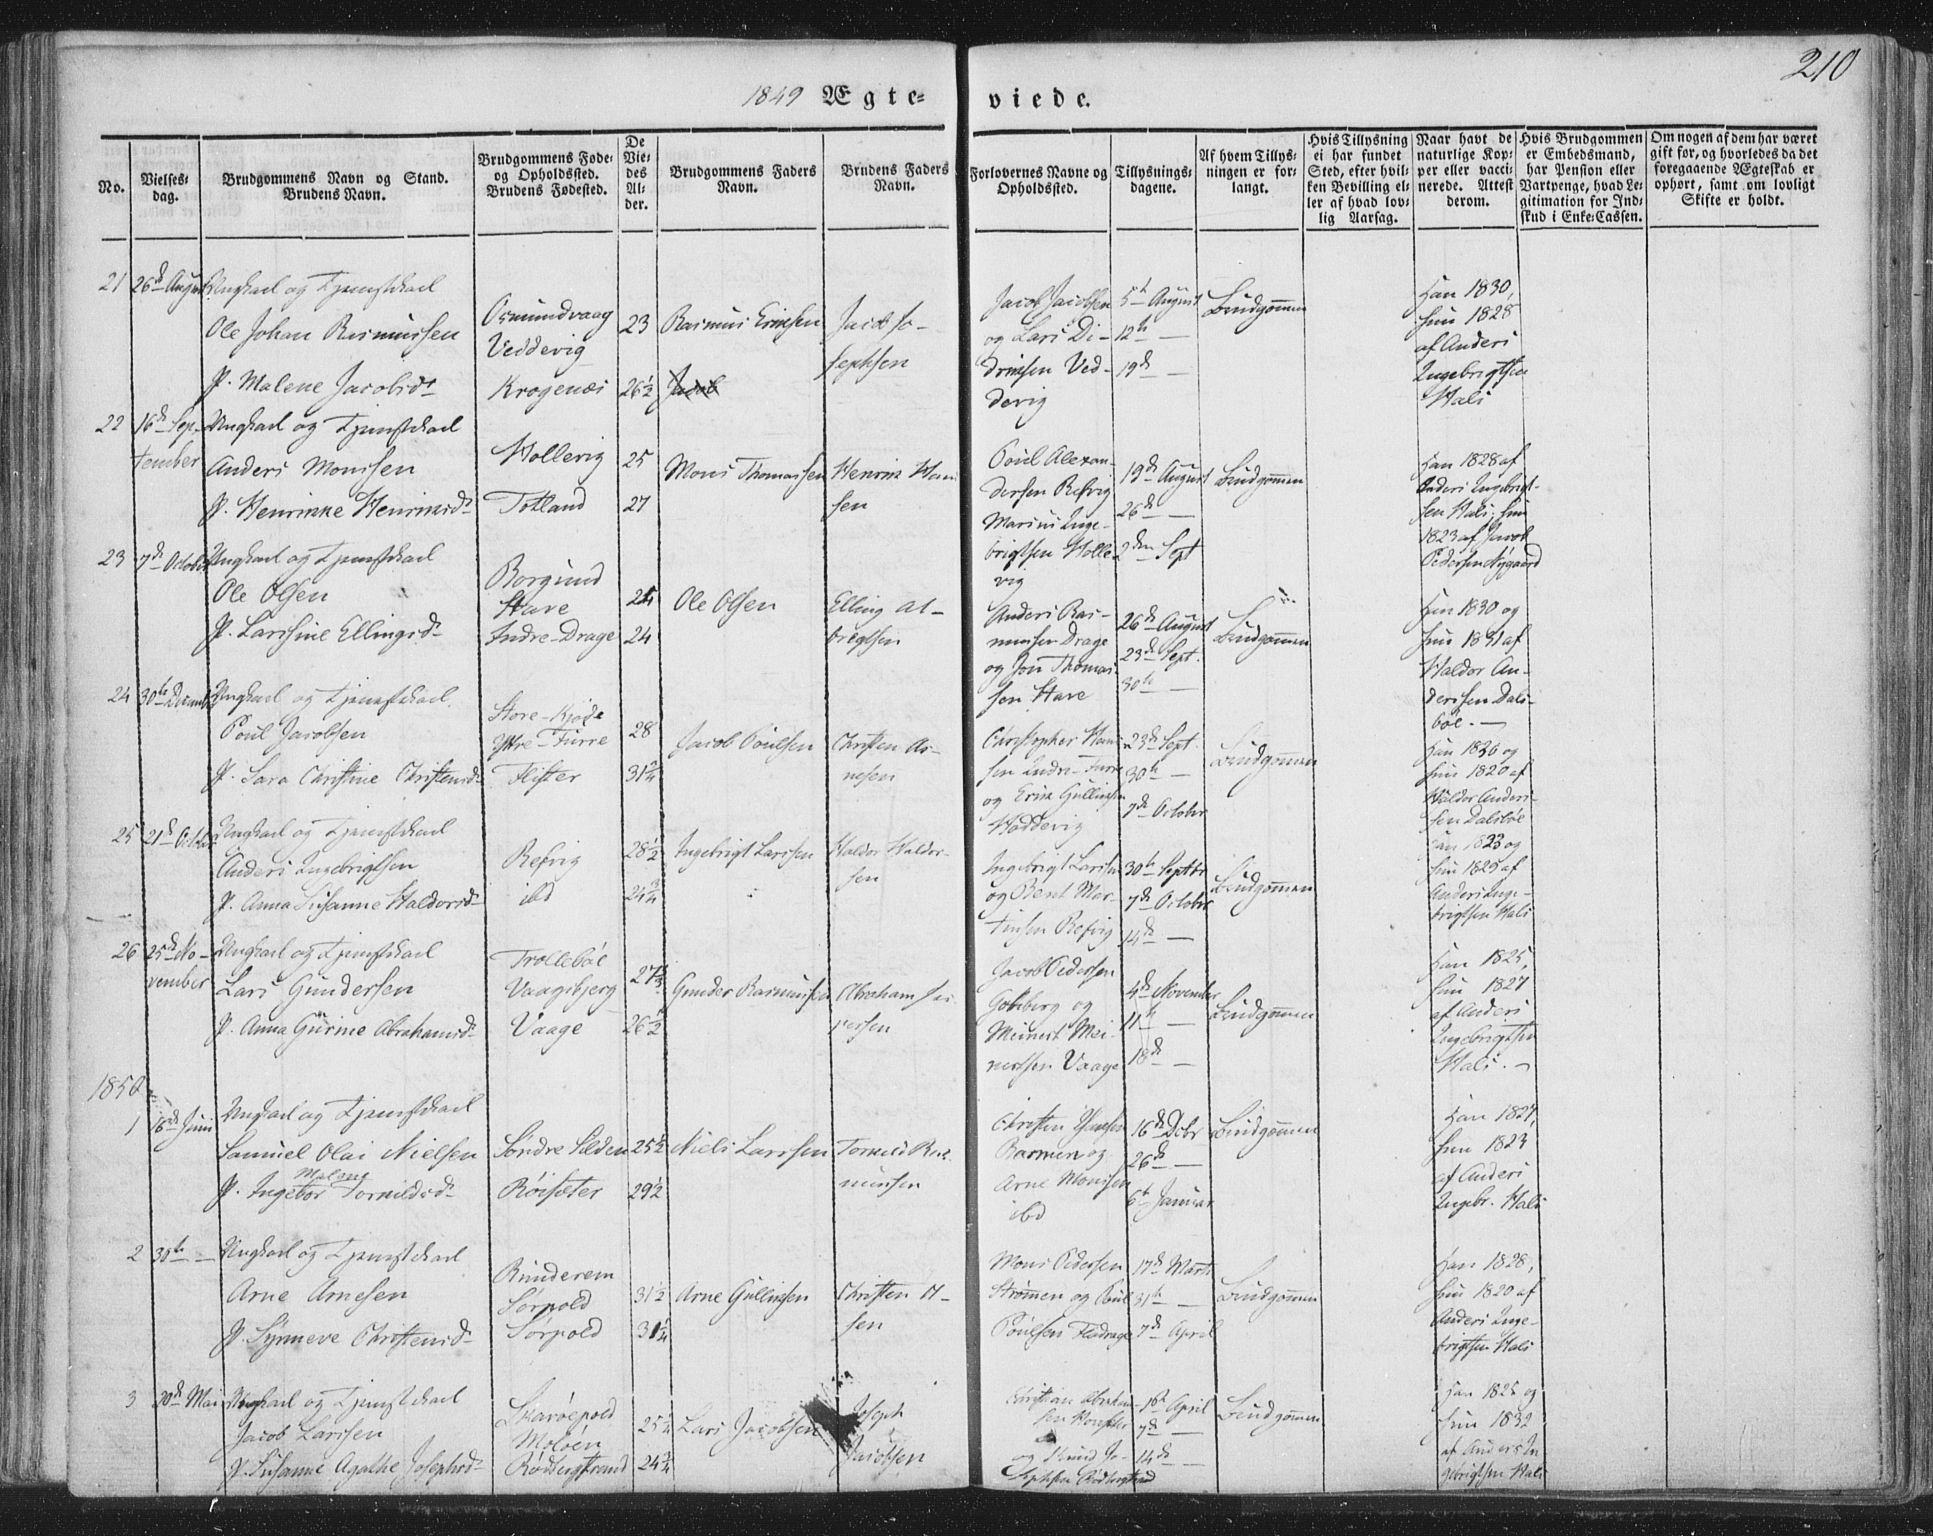 210
1849 Ægte= viede.
No.
Vielses-
dag.
Brudgommens Navn og Stand.
Brudens Navn.
Brudgommens Føde-
og Opholdssted.
Brudens Fødested.
De
Vie-
des
Al-
der.
Brudgommens Faders
Navn.
Brudens Faders
Navn.
Forlovernes Navne og
Opholdssted.
Tillysnings-
dagene.
Af hvem Tillys-
ningen er for-
langt.
Hvis Tillysning
ei har fundet
Sted, efter hvil-
ken Bevilling el-
ler af hvad lov-
lig Aarsag.
Naar havt de
naturlige Kop-
per eller vacci-
nerede. Attest
derom.
Hvis Brudgommen
er Embedsmand,
har Pension eller
Vartpenge, hvad Le-
gitimation for Ind-
skud i Enke-Cassen.
Om nogen af dem har været
gift før, og hvorledes da det
foregaaende Ægteskab er
ophørt, samt om lovligt
Skifte er holdt.
21 26de August Ungkarl og Tjenestekarl
Ole Johan Rasmussen
P. Malene Jacobsd.
Osmundvaag
Veddevig
Krogenæs
23
26½
Rasmus Ericksen
Jacob Jo-
sephsen
Jacob Jacobsen
og Lars Di-
driksen Ved-
devig
5te August
12te —
19de —
Brudgommen
Han 1830,
hun 1828
af Anders
Ingebrigtsen
Hals
22 16de Sep-
tember
Ungkarl og Tjenestekarl
Anders Monssen
P. Henrikke Henriksd.
Hollevig
Totland
25
27
Mons Thomassen
Henrik Han
sen
Poul Alexan-
dersen Refvig
Marius Inge-
brigtsen Holle-
vig
19de August
26de —
2den Sept
Brudgommen
Han 1828 af
Anders Ingebrigt-
sen Hals, hun
1823 af Jacob
Pedersen Nygaard
23 7de October Ungkarl og Tjenestekarl
Ole Olsen
P. Larsine Ellingsd.
Borgund
Stave
Indre-Drage
24
24
Ole Olsen
Elling Al-
brigtsen
Anders Ras-
mussen Drage
og Jon Thomas-
sen Stave
26de August
23de Sept.
30te —
Brudgommen
Han 1830 og
hun 1831 af
Haldor An-
dersen Dals-
böe. —
24 30te Ungkarl og Tjenestekarl.
Poul Jacobsen
P. Sara Christine Christensd.
Store-Kjøde
Yttre-Furre
Flister
28
31¼
Jacob Poulsen
Christen Ar-
nesen
Christopher Han-
sen Indre-Furre
og Erik Gullicksen
Hoddevig
23de Sept.
30te —
7de October
Brudgommen
Han 1826 og
hun 1820 af
Haldor Anders-
sen Dalsböe
25 21de October Ungkarl og Tjenestekarl
Anders Ingebrigtsen
P. Anna Susanne Haldorsd.
Refvig
ibd
28½
24¾
Ingebrigt Larssen
Haldor Haldor-
sen
Ingebrigt Larssen
og Bent Mar-
tinsen Refvig
30te Septbr
7de October
14de —
Brudgommen
Han 1823 og
hun 1825 af
Anders Inge-
brigtsen Hals
26 25de No-
vember
Ungkarl og Tjenestekarl
Lars Gundersen
P. Anna Gurine Abrahamsd.
Trollebøe
Vaagsbjerg
Vaage
27¾
26½
Gunder Rasmussen
Abraham Jas-
persen
Jacob Pedersen
Goteberg og
Meinert Mei-
nertsen Vaage
4de November
11te —
18de —
Brudgommen
Han 1825,
hun 1827
af Anders
Ingebrigtsen
Hals. —
1850
1
Ungkarl og Tjenestekarl
Samuel Olai Nielsen
Malene
P. Ingebor Tormildsd.
Søndre Silden
Röiseter
25½
29½
Niels Larssen
Tormild Ras-
mussen
Christen
Barmen og
Arne Monsen
ibd
16de Dcbr
26de —
6te Januar
Brudgommen
Han 1827,
hun 1823
af Anders
Ingebr. Hals
2 30te — Ungkarl og Tjenestekarl
Arne Arnesen
P. Synneve Christensd.
Runderem
Sørpold
Sørpold
31½
31¼
Arne Gullicksen
Christen Ol-
sen
Mons Pedersen
Strømen og Poul
Poulsen Fladrage
17de Marts
31te —
7de April
Brudgommen
Han 1828,
hun 1820 af
Anders Inge-
brigtsen Hals
3 20de Mai Ungkarl og Tjenestekarl
Jacob Larssen
P. Susanne Agathe Josephsd.
Skaröepold
Moløen
Rødbergstrand
25¼
24¾
Lars Jacobsen
Joseph
Jacobsen
Christian Abraham-
sen
og Knud Jo-
sephsen Rødbergstrand
1ste April
7de —
14de —
Brudgommen
Han 1825 og
hun 1832
af Anders In
gebrigtsen Hals